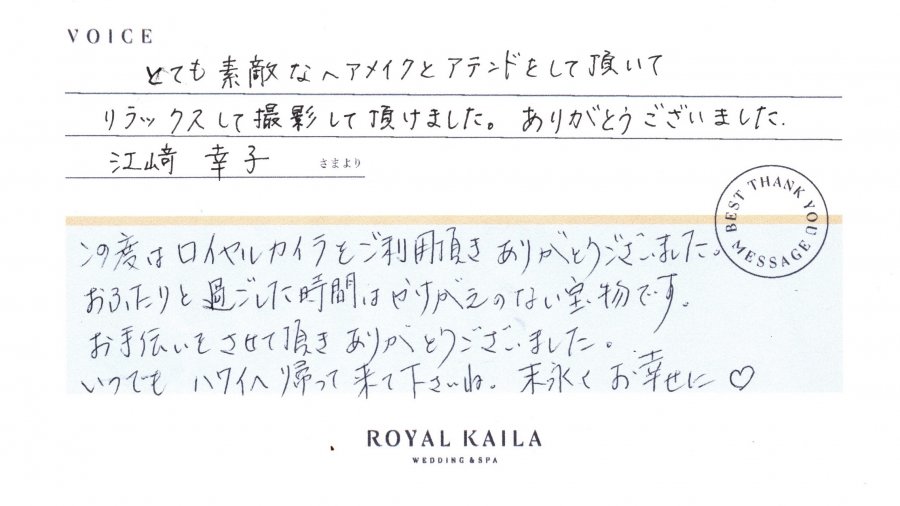 VOICE
とても素敵なヘアメイクとアテンドをして頂いて
リラックスして撮影して頂けました。ありがとうございました.
江﨑 幸子 さまより
BEST THANK YOU MESSAGE
この度はロイヤルカイラをご利用頂きありがとうございました。
おふたりと過ごした時間はかけがえのない宝物です。
お手伝いをさせて頂きありがとうございました。
いつでも ハワイへ帰って来て下さいね。末永くお幸せに♡
ROYAL KAILA
WEDDING & SPA